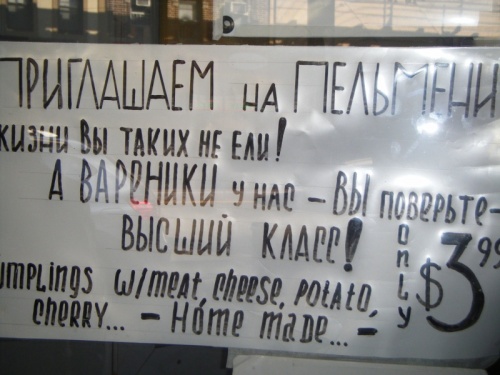 ПРИГЛАШАЕМ на ПЕЛЬМЕНИ
жизни Вы таких не ели!
А ВАРЕНИКИ у нас – ВЫ поверьте–
ВЫСШИЙ КЛАСС!
only $3.99
umplings w/meat, cheese, potato,
cherry... – Home made... –